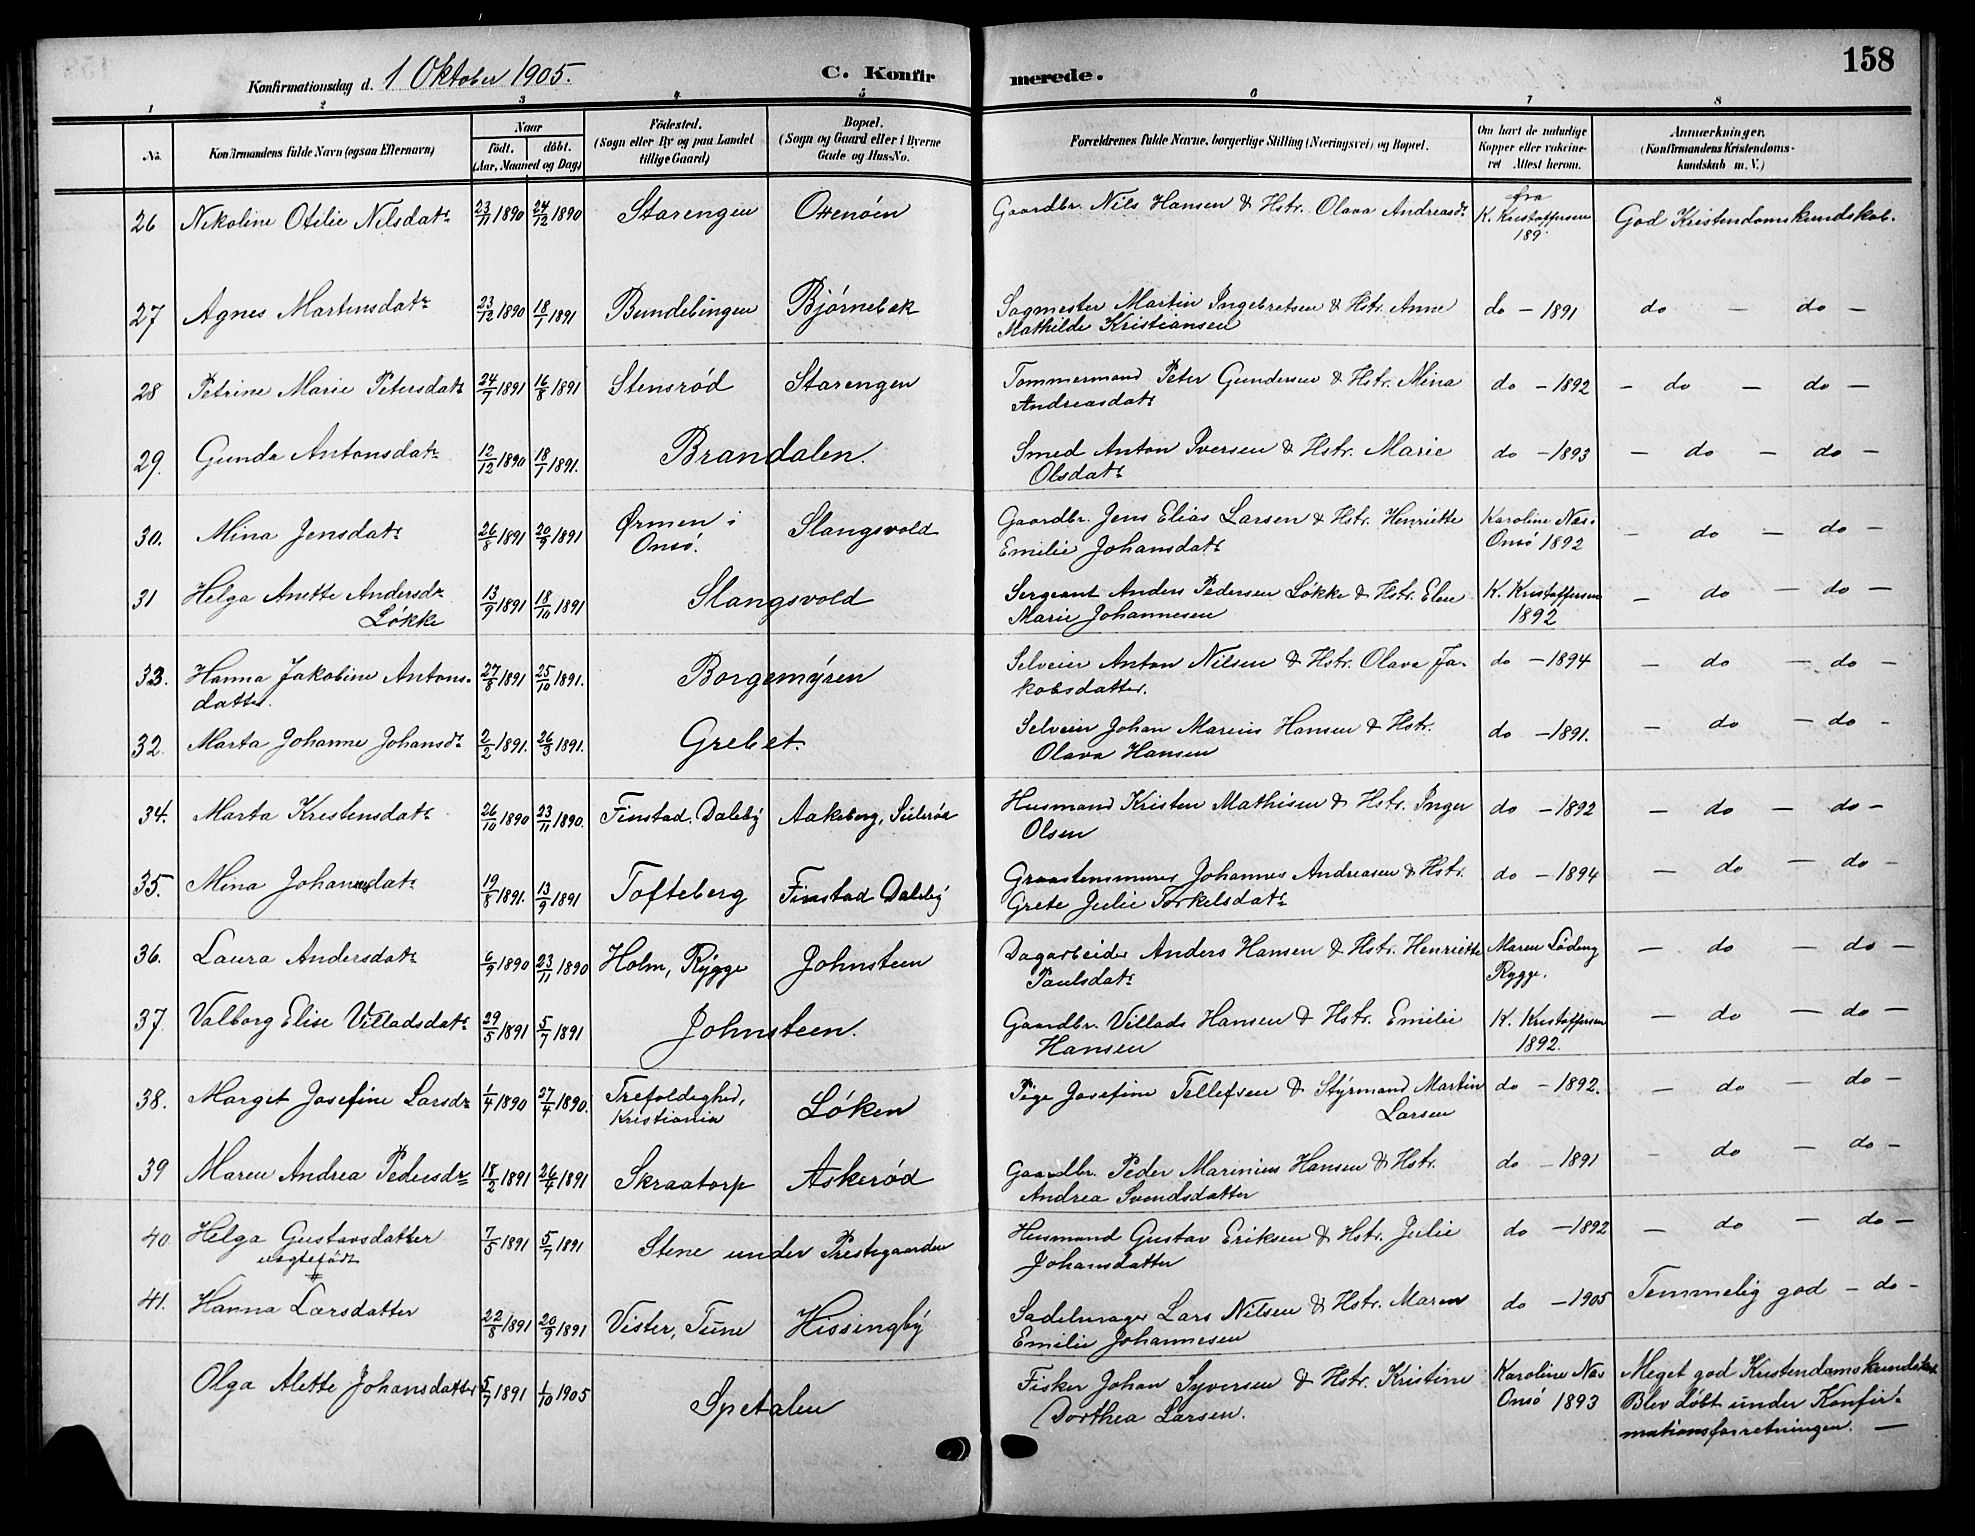 158
Konfirmationsdag d. 1 Oktober 1905.
C. Konfirmerede.
1 2 3 4 5 6 7 8
No.
Konfirmandens fulde Navn (ogsaa Efternavn)
Naar
født. døbt.
(Aar, Maaned og Dag)
Fødested.
(Sogn eller By og paa Landet
tillige Gaard)
Bopæl.
(Sogn og Gaard eller i Byerne
Gade og Hus-No.
Forældrenes fulde Navne, borgerlige Stilling (Næringsvei) og Bopæl.
Om havt de naturlige
Kopper eller vakcine-
ret Attest herom.
Anmærkninger.
(Konfirmandens Kristendoms-
kundskab m. V.)
26 Nikoline Otilie Nilsdatr 23/11 1890 24/12 1890 Starengen Oxenøen Gaardbr. Nils Hansen & Hstr. Olava Andreasdr fra
K. Kristoffersen God Kristendomskundskab.
189
27 Agnes Martensdatr 23/12 1890 18/1 1891 Bundelingen Bjørnebæk Sagmester Martin Ingebretsen & Hstr. Anne do - 1891 do - do -
Mathilde Kristiansen
28 Petrine Marie Petersdatr 24/7 1891 16/8 1891 Stensrød Starengen Tømmermand Peter Gundersen & Hstr. Mina do - 1892 - do - do -
Andreasdatr
29. Gunda Antonsdatr 12/12 1890 18/1 1891. Brandalen. Smed Anton Iversen & Hstr. Marie do - 1893 - do - do -
Olsdatr
30. Mina Jensdatr 26/8 1891 20/9 1891 Ørmen i Slangsvold Gaardbr. Jens Elias Larsen & Hstr. Henriette Karoline Næs. - do - do -
Onsø. Emilie Johansdatr Onsø 1892
31 Helga Anette Andersdr 13/9 1891 18/10 1891 Slangsvold Sergeant Anders Pedersen Løkke & Hstr. Elen K. Kristoffersen - do - do -
Løkke Marie Johannesen 1892
33. Hanna Jakobine Antons- 27/8 1891 25/10 1891. Borgemyren Selveier Anton Nilsen & Hstr. Olava Ja- do - 1894 - do - do -
datter. kobsdatter.
32. Marta Johanne Johansdr 2/2 1891. 26/3 1891. Grebet. Selveier Johan Marius Hansen & Hstr. do - 1891. - do - do -
Olava Hansen
34. Marta Kristensdatr 26/10 1890 23/11 1890. Finstad. Daleby Aakeberg, Husmand Kristen Mathisen & Hstr. Inger do - 1892 - do - do -
Olsen
35. Mina Johannesdatr 19/8 1891. 13/9 1891 Tofteberg Finstad Daleby Graastensmurer Johannes Andreasen & Hstr. do - 1894 - do - do -
Grete Julie Torkelsdatr
36. Laura Andersdatr 6/9 1890 23/11 1890 Holm, Rygge Johnsteen Dagarbeider Anders Hansen & Hstr. Henriette Maren Lødeng - do - do -
Paulsdatr Rygge.
37. Valborg Elise Villadsdatr 29/5 1891 5/7 1891 Johnsteen. Gaardbr. Villads Hansen & Hstr. Emilie K. Kristoffersen - do - do -
Hansen 1892.
38. Marget Josefine Larsdr 1/4 1890 27/4 1890. Trefoldighed, Løken Pige Josefine Tellefsen & Styrmand Martin do - 1892. - do - do -
Kristiania Larsen
39 Maren Andrea Pedersdr 18/2 1891 26/4 1891 Skraatorp Askerød Gaardbr. Peder Marinius Hansen & Hstr. do - 1891 - do - do -
Andrea Svendsdatter
40 Helga Gustavsdatter 7/5 1891 5/7 1891 Stene under Prestegaarden Husmand Gustav Eriksen & Hstr. Julie do - 1892 - do - do -
uægtefødt Johansdatter
41. Hanna Larsdatter 22/8 1891 20/9 1891 Vister, Tune Hissingby Sadelmager Lars Nilsen & Hstr. Maren do - 1905 Temmelig god - do -
Emilie Johannesen
Olga Alette Johansdatter 5/7 1891 1/10 1905 Spetalen Fisker Johan Syversen & Hstr. Kristine Karoline Næs Meget god Kristendomskundskab
Dorthea Larsen. Onsø 1893 Blev døbt under Konfir-
mationsforretningen. -